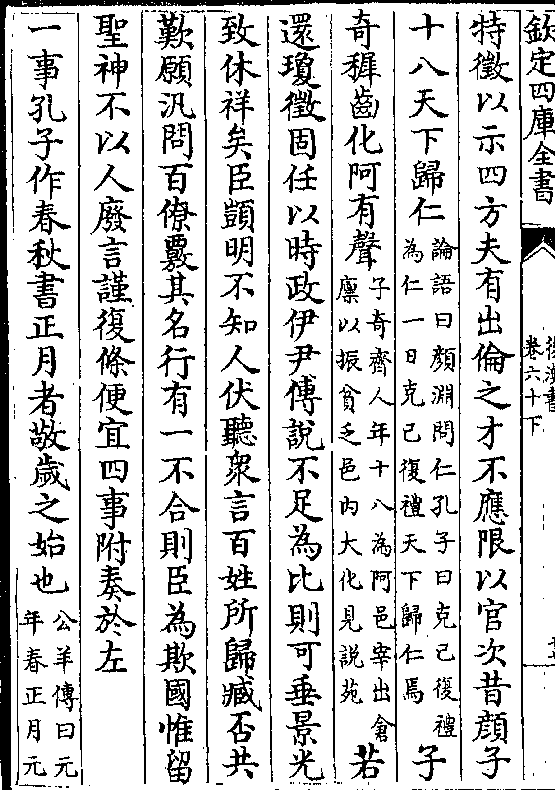 欽定四庫全書
後漢書
卷六十下
特徵以示四方夫有出倫之才不應限以官次昔顔子
十八天下歸仁論語曰顏淵問仁孔子曰克己復禮為仁一日克己復禮天下歸仁焉子
奇穉齒化阿有聲子奇齊人年十八為阿邑宰出倉廪以振貧乏邑内大化見説苑若
還瓊徵固任以時政伊尹傅說不足為比則可垂景光
致休祥矣臣顗明不知人伏聽衆言百姓所歸臧否共
歎願汎問百僚覈其名行有一不合則臣為欺國惟留
聖神不以人廢言謹復條便宜四事附奏於左
一事孔子作春秋書正月者敬歲之始也公羊傳曰元年春正月元